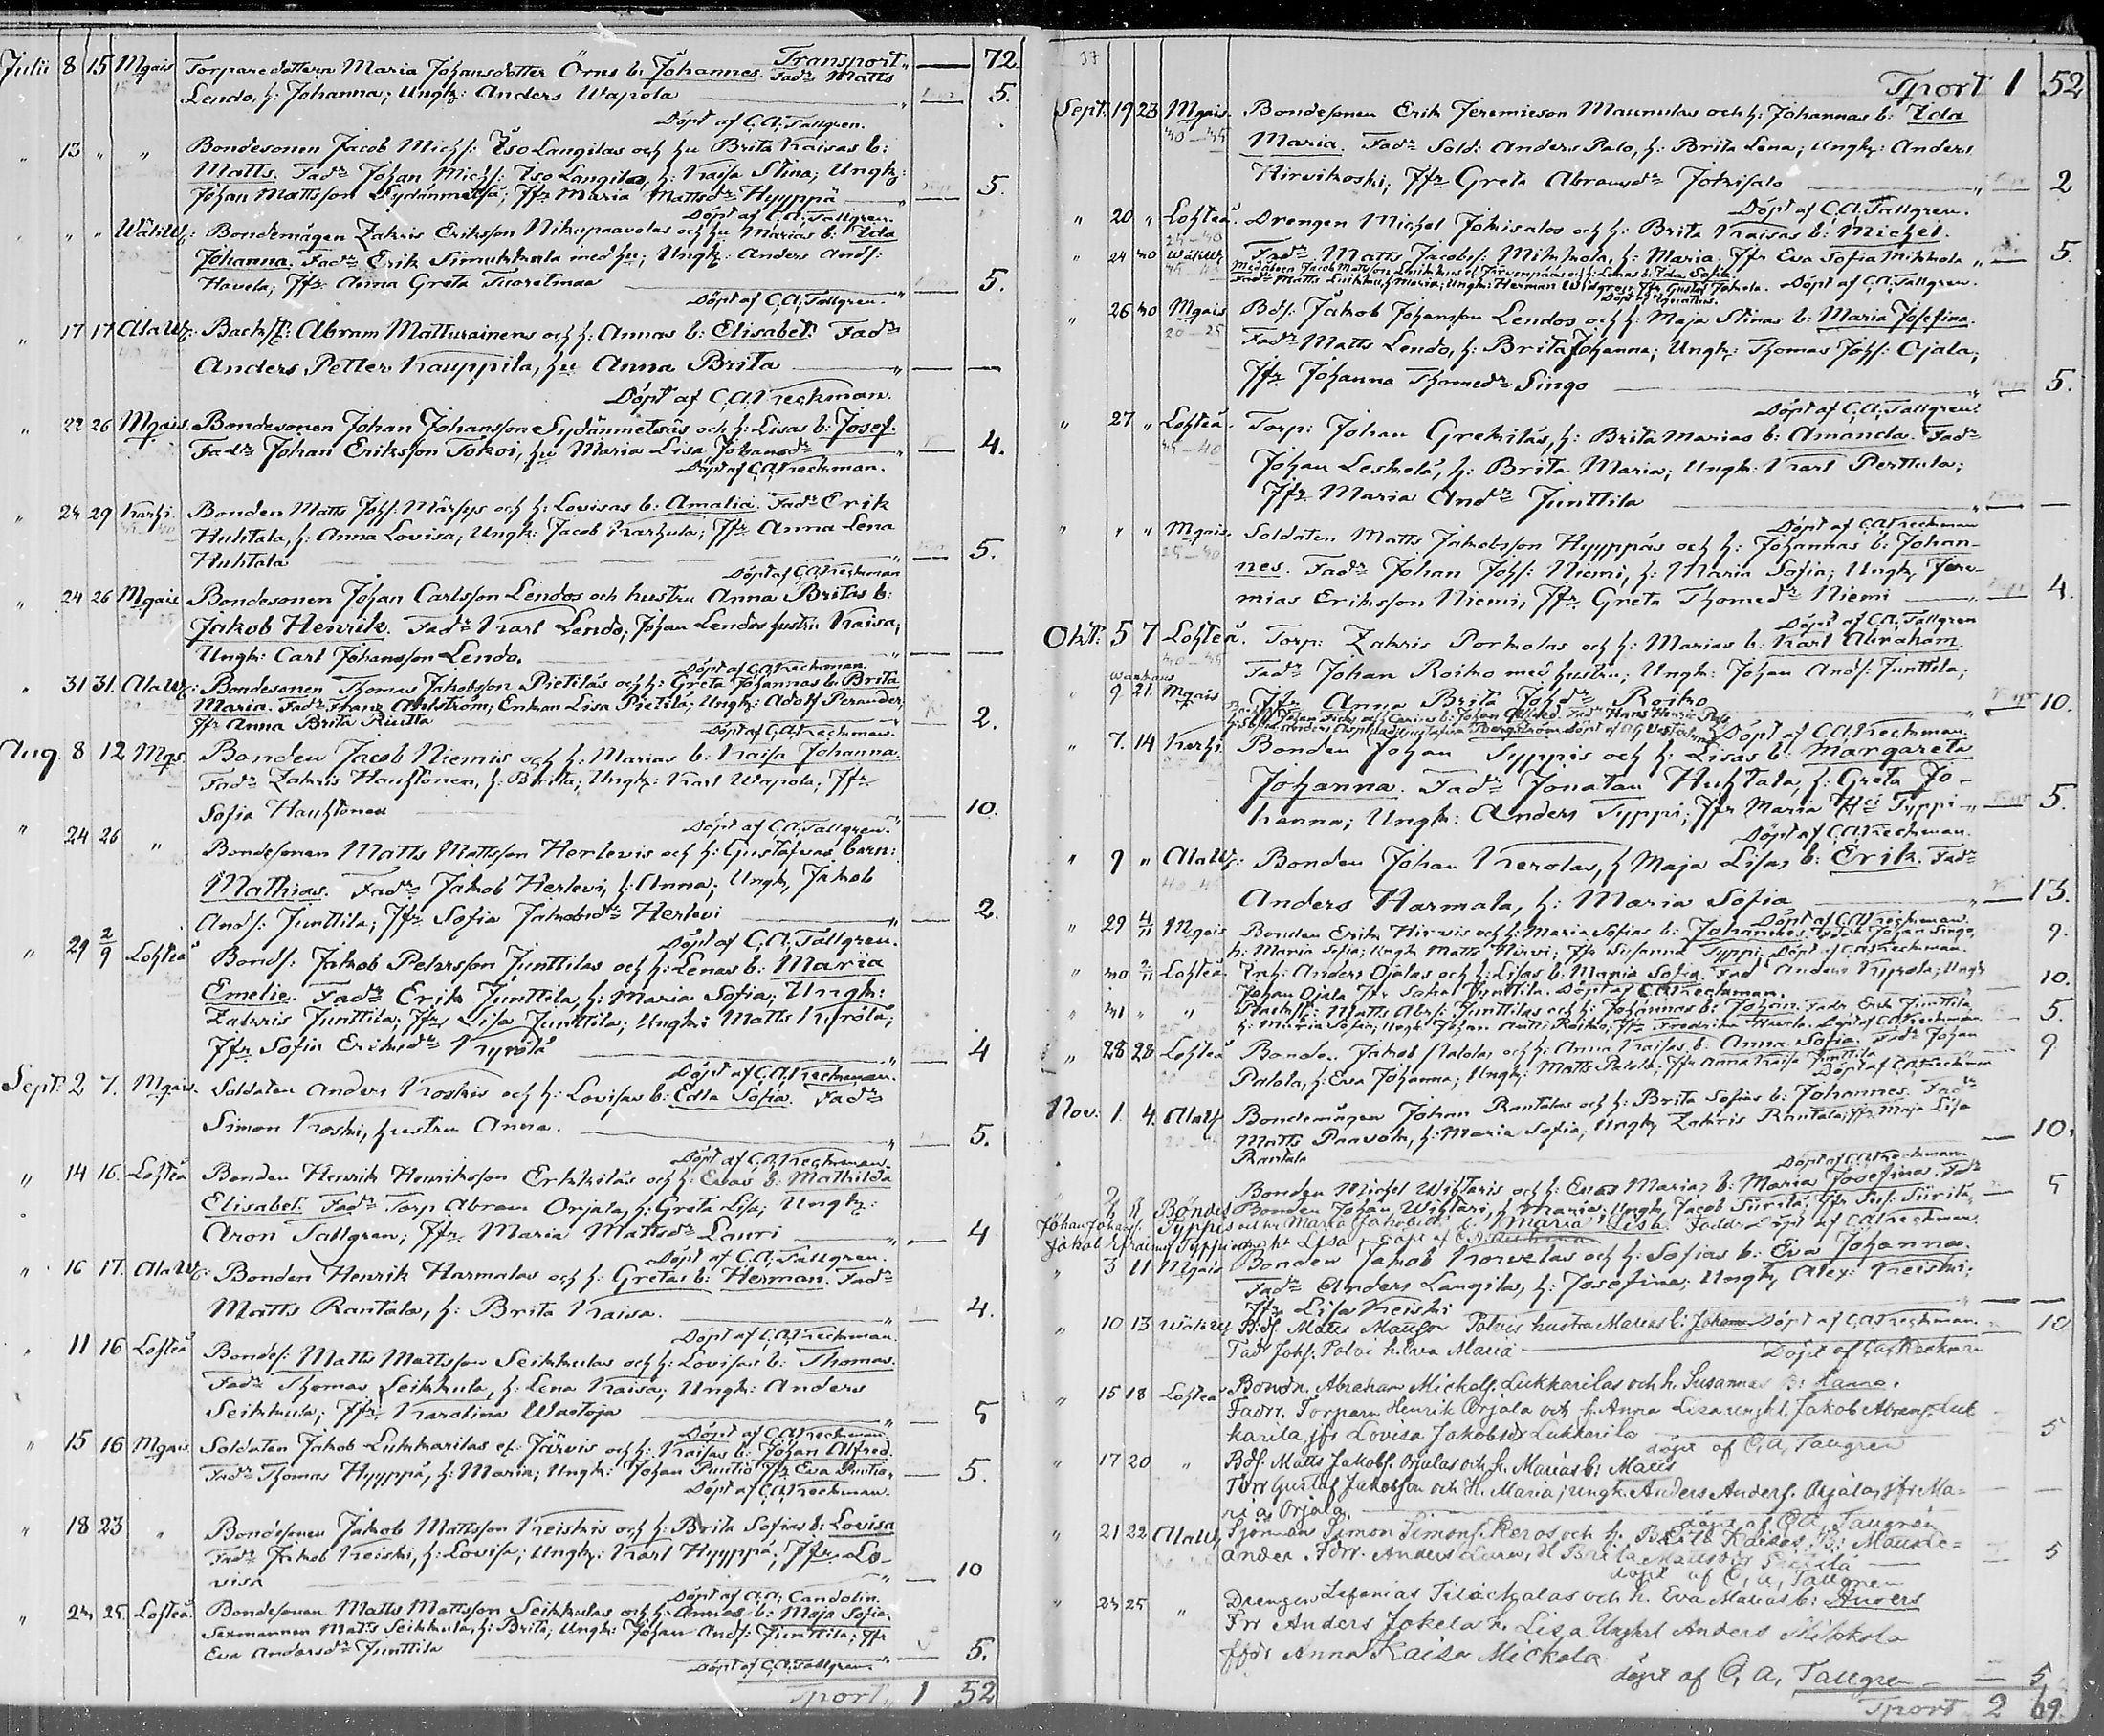 Transport „ — 72
Julii 8 15 Mgais Torparedottern Maria Johansdotter Örns b: Johannes. Fadr Matts
Lendo, h: Johanna; Ungk: Anders Wapola „ — 5.
Döpt af C.A. Tallgren.
„ 13 „ „ Bondesonen Jacob Michs: Iso Langilas och hu Brita Kaisas b:
Matts. Fadr Johan Michs: Iso Langila, h: Kaisa Stina; Ungk:
Johan Mattsson Sydänmetsä; Jfr Maria Mattsdr Hyyppä — 5.
Döpt af C.A. Tallgren.
„ „ „ Bondemågen Zakris Eriksson Nikupaavolas och hu Marias b: Ida
Johanna. Fadr Erik Simukkala med hu; Ungk: Anders Ands:
Havela; Jfr Anna Greta Tuoretmaa — 5.
Döpt af C.A. Tallgren.
„ 17 17 Alaw: Backst: Abram Matturainens och h: Annas b: Elisabet. Fadr
Anders Petter Kauppila, hu Anna Brita „ — —
Döpt af C.A. Keckman.
„ 22 26 Mgais. Bondesonen Johan Johansson Sydänmetsäs och h: Lisas b: Josef.
Fadr Johan Eriksson Tokoi, hu Maria Lisa Johansdr — 4.
Döpt af C.A. Keckman.
„ 24 29 Karhi. Bonden Matts Johs: Märsys och h: Lovisas b: Amalia. Fadr Erik
Huhtala, h: Anna Lovisa; Ungk: Jacob Karhula; Jfr Anna Lena
Huhtala „ — 5.
Döpt af C.A. Keckman
„ 24 26 Mgais Bondesonen Johan Carlsson Lendos och hustru Anna Britas b:
Jakob Henrik. Fadr Karl Lendo; Johan Lendos hustru Kaisa;
Ungk: Carl Johansson Lendo. „ — —
Döpt af C.A. Keckman.
„ 31 31. Alaw: Bondesonen Thomas Jakobsson Pietiläs och h: Greta Johannas b: Brita
Maria. Fadr Franz Ahlström; Enkan Lisa Pietilä; Ungk: Adolf Pernander,
Jfr Anna Brita Riutta — 2.
Döpt af C.A. Keckman.
Aug. 8 12 Mgs. Bonden Jacob Niemis och h: Marias b: Kaisa Johanna.
Fadr Zakris Hauhtonen, h: Brita; Ungk: Karl Wapola; Jfr
Sofia Hauhtonen 10.
Döpt af C.A. Tallgren.
„ 24 26 „ Bondesonen Matts Mattsson Herlevis och h: Gustafvas barn:
Mathias. Fadr Jakob Herlevi, h: Anna; Ungk, Jakob
Ands: Junttila; Jfr Sofia Jakobsdr Herlevi „ 2.
Döpt af C.A. Tallgren.
„ 29 2/9 Lohteå Bonds: Jakob Pehrsson Junttilas och h: Lenas b: Maria
Emelie. Fadr Erik Junttila, h: Maria Sofia; Ungk:
Zakris Junttila; Jfr Lisa Junttila; Ungk: Matts Kyrölä;
Jfr Sofia Eriksdr Kyrölä „ — 4
Döpt af C.A. Keckman.
Sept: 2 7. Mgais. Soldaten Anders Koskis och h: Lovisas b: Edla Sofia. Fadr
Simon Koski, hustru Anna. „ — 5.
Döpt af C.A. Keckman.
„ 14 16. Lohteå Bonden Henrik Henriksson Erkkiläs och h: Evas b: Mathilda
Elisabet. Fadr Torp Abram Orjala, h: Greta Lisa; Ungk:
Aron Sallgren; Jfr Maria Mattsdr Lauri „ — 4
Döpt af C.A. Tallgren.
„ 16 17. Alaw: Bonden Henrik Harmalas och h: Gretas b: Herman. Fadr
Matts Rantala, h: Brita Kaisa. „ — 4.
Döpt af C.A. Keckman.
„ 11 16 Lohteå Bondes: Matts Mattsson Seikkulas och h: Lovisas b: Thomas.
Fadr Thomas Seikkula, h: Lena Kaisa; Ungk: Anders
Seikkula; Jfr Karolina Wastoja „ — 5
Döpt af C.A. Keckman
„ 15 16 Mgais. Soldaten Jakob Lukkarilas el: Järvis och h: Kaisas b: Johan Alfred.
Fadr Thomas Hyyppä, h: Maria; Ungk: Johan Puutio Jfr Eva Puutio. — 5.
Döpt af C.A. Keckman.
„ 18 23 „ Bondesonen Jakob Mattsson Keiskis och h: Brita Sofias b: Lovisa
Fadr Jakob Keiski, h: Lovisa; Ungk: Karl Hyyppä; Jfr Lo-
visa „ — 10
Döpt af A.A. Candolin.
„ 24 25. Lohteå Bondesonen Matts Mattsson Seikkulas och h: Annas b: Maja Sofia.
Sexmannen Matts Seikkula, h: Brita; Ungk: Johan Ands: Junttila; Jfr
Eva Andersdr Junttila „ — 5.
Döpt af C.A. Tallgren.
Tport „ 1 52
37
Tport 1 52
Sept: 19 23 Mgais. Bondesonen Erik Jeremieson Maunulas och h: Johannas b: Ida
Maria. Fadr Sold: Anders Palo, h: Brita Lena; Ungk: Anders
Hirvikoski; Jfr Greta Abramsdr Jokisalo „ — 2
Döpt af C.A. Tallgren.
„ 20 „ Lohteå. Drengen Michel Jokisalos och h: Brita Kaisas b: Michel.
Fadr Matts Jacobss: Mikkola, h: Maria. Jfr Eva Sofia Mikkola „ — 5.
Döpt af C.A. Tallgren.
„ 24 30
Döpt af Ignatius.
„ 26 30 Mgais Bds: Jakob Johansson Lendos och h: Maja Stinas b: Maria Josefina.
Fadr Matts Lendo, h: Brita Johanna; Ungk: Thomas Johs: Ojala,
Jfr Johanna Thomedr Singo — 5.
Döpt af C.A. Tallgren.
„ 27 „ Lohteå. Torp: Johan Grekiläs, h: Brita Marias b: Amanda. Fadr
Johan Leskelä, h: Brita Maria; Ungk: Karl Perttula;
Jfr Maria Andr Junttila „ — —
Döpt af C.A. Keckman
„ „ „ Mgais. Soldaten Matts Jakobsson Hyyppäs och h: Johannas b: Johan-
nes. Fadr Johan Johs: Niemi, h: Maria Sofia; Ungk, Jere-
mias Eriksson Niemi, Jfr Greta Thomedr Niemi — 4.
Döpt af C.A. Tallgren
Okt: 5 7 Lohteå. Torp: Zakris Porkolas och h: Marias b: Karl Abraham.
Fadr Johan Roiko med hustru; Ungk: Johan Ands: Junttila;
Jfr Anna Brita Johdr Roiko „ — 10.
9 21. Mgais
Döpt af C.A. Keckman.
„ 7. 14 Karhi. Bonden Johan Typpis och h: Lisas b: Margareta
Johanna. Fadr Jonatan Huhtala, h: Greta Jo-
hanna; Ungk: Anders Typpi; Jfr Maria Typpi „ — 5.
Döpt af C.A. Keckman.
„ 9 „ Alaw: Bonden Johan Kerolas, h Maja Lisas b: Erik. Fadr
Anders Harmala, h: Maria Sofia — 13.
Döpt af C.A. Keckman.
„ 29 4/11 Mgais Bonden Erik Hirvis och h: Maria Sofias b: Johannes. Fadr Johan Singo,
h: Maria Sofia; Ungk Matts Hirvi; Jfr Susanna Typpi. Döpt af C.A. Keckman. 9.
„ 30 2/11 Lohteå Anders Ojalas och h: Lisas b: Maria Sofia. Fadr Anders Kyrölä; Ungk
Johan Ojala Jfr Junttila. Döpt af C.A. Keckman. 10.
„ 31 „ „ Matts Abrs: Junttilas och h: Johannas b: Johan. Fadr Erik Junttila
h: Maria Sofia; Ungk Johan Roiko, Jfr Fredrika Havela. Döpt af C.A. Keckman — 5.
„ 28 28 Lohteå Bonden Jakob Palolas och h: Anna Kaisas b: Anna Sofia. Fadr Johan
Palola, h: Eva Johanna; Ungk: Matts Palola; Jfr Anna Kaisa Junttila 9
Döpt af C.A. Keckman
Nov: 1. 4. Alaw Bondemågen Johan Rantalas och h: Brita Sofias b: Johannes. Fadr
Matts Paavola, h: Maria Sofia; Ungk Zakris Rantala; Jfr Maja Lisa
Rantala — 10.
Döpt af C.A. Keckmann
Bonden Michel Wihtaris och h: Evas Marias b: Maria Josefina. Fadr
Bonden Johan Wihtari, h: Maria; Ungk, Jacob Siirilä; Jfr Siirilä; — 5
Döpt af C.A. Keckman.
„ 3 11 Mgais Bonden Jakob Korvelas och h: Sofias b: Eva Johanna.
Fadr Anders Langila, h: Josefina; Ungk, Alex: Keiski;
Jfr Lisa Keiski — —
Döpt af C.A. Keckman.
„ 10 13 Bds. Matts Polvis hustru Marias b: Johan 10
Fadr Johs. Polvi h. Eva Maria
Döpt af C.A. Keckman
„ 15 18 Lohteå Bondn. Abraham Mickels. Lukkarilas och h. Susannas b: Sanna.
Fadrr. Torparn Henrik Orjala och h. Anna Lisa ungkl. Jakob Abrams. Luk
karila jfr Lovisa Jakobsdr Lukkarila 5
döpt af C.A. Tallgren
„ 17 20 „ Bds. Matts Jakobs. Orjalas och h. Marias b: Matts
Fdrr Gustaf Jakobson och H. Maria; ungk. Anders Anders. Orjala, jfr Ma-
ria Orjala. — —
döpt af C.A. Tallgren
„ 21 22 Alaw, Sjöman Simon Simons. Keros och h. Brita Kaisas b:
ander. Fdrr. Anders, H Brita Mattsdr Pietilä — 5
döpt af C.A. Tallgren
„ 24 25 „ Drengen Sefanias och h. Eva Marias b: Anders
Frr Anders Jokela h. Lisa Unghrl Anders Mikkola
jfr Anna Kaisa Mickola
döpt af C.A. Tallgren — 5
Tport 2 69.